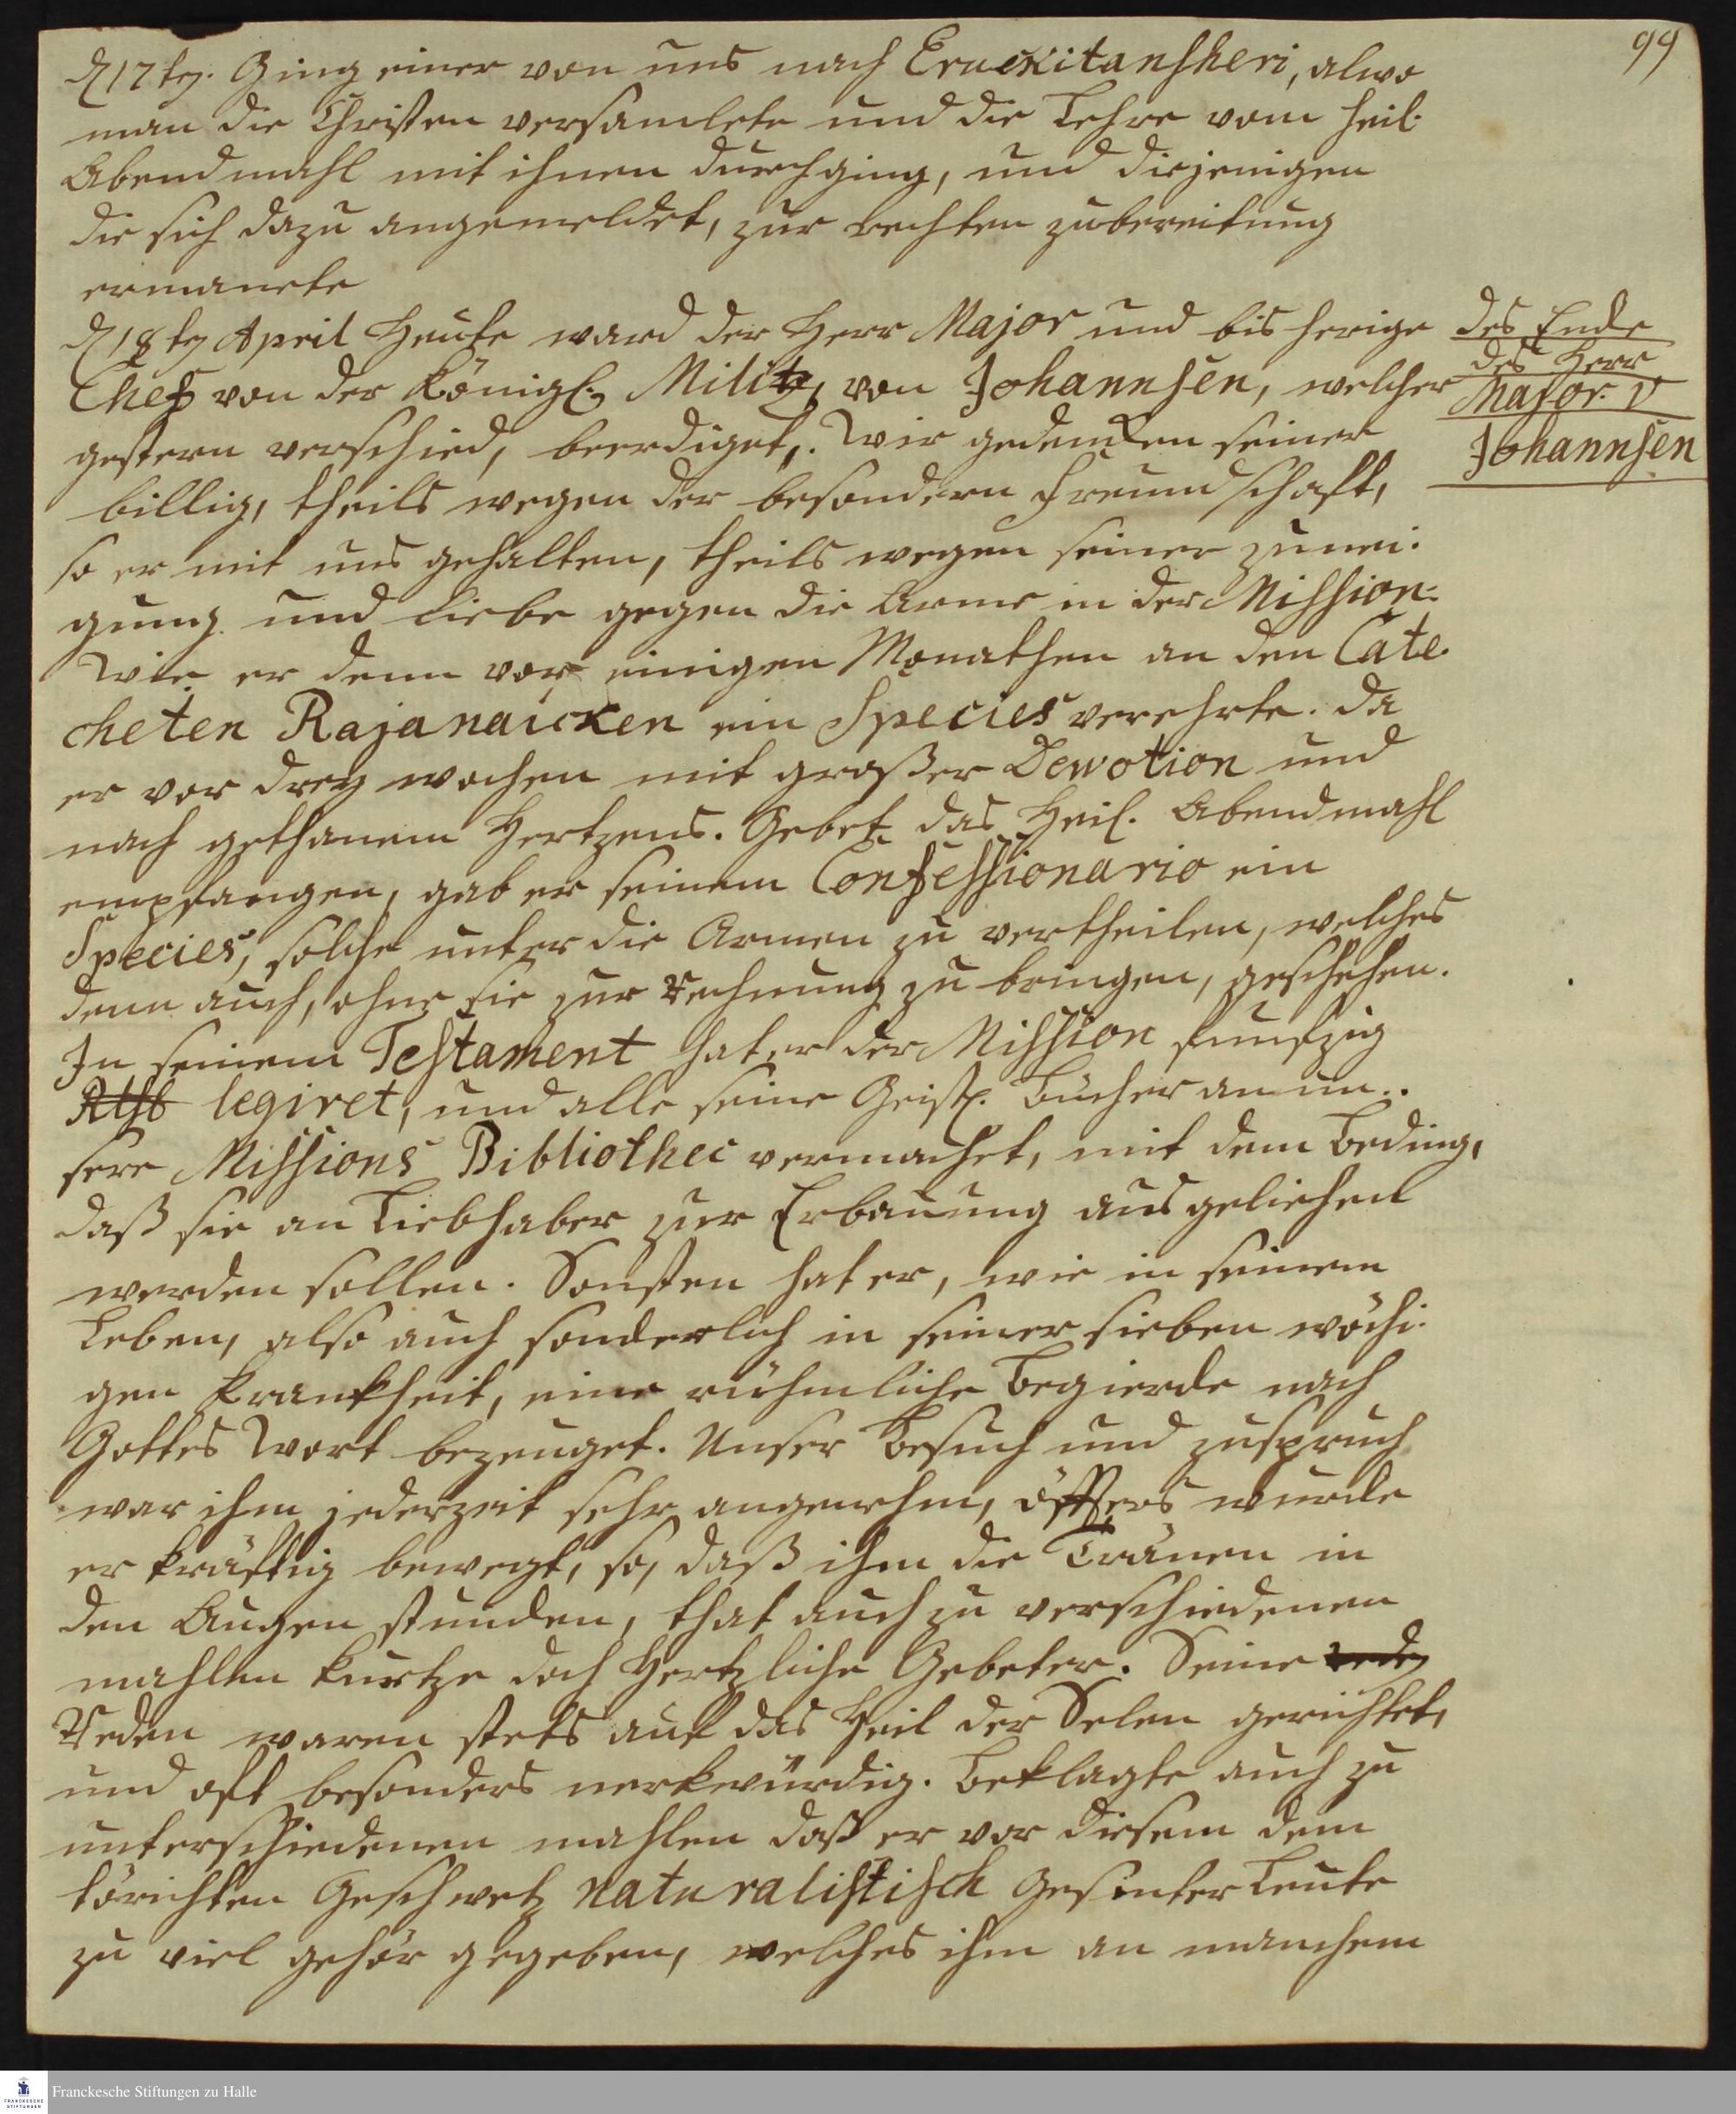 99
d 17 ten. Ging einer von uns nach Eruckitanscheri, alwo
man die Christen versamlete und die Lehre vom heil.
Abendmahl mit ihnen durchging, und diejenigen
die sich dazu angemeldet, zur rechten zubereitung
ermanete
d 18 ten April Heute ward der Herr Major und bis herige
Chef von der Königl. Militz, von Johannsen, welcher
gestern verschied, beerdiget. Wir gedencken seiner
billig, theils wegen der besondern Freundschafft,
so er mit uns gehalten, theils wegen seiner zunei-
gung und Liebe gegen die Arme in der Mission.
Wie er denn vor einigen Monathen an den Cate-
cheten Rajanaicken ein Species verehrte. Da
er vor drey wochen mit großer Dewotion und
nach gethanem Hertzens. Gebet das Heil. Abendmahl
empfangen, gab er seinem Confessionario ein
Species, solche unter die Armen zu vertheilen, welches
denn auch, ohne sie zur Rechnung zu bringen, geschehen.
In seinem Testament hat er der Mission funfzig
Rthl legiret, und alle seine Geistl. Bücher an un-
sere Missions Bibliothec vermachet, mit dem Beding,
daß sie an Liebhaber zur Erbauung ausgeliehen
werden sollen. Sonsten hat er, wie in seinem
Leben, also auch sonderlich in seiner sieben wöchi-
gen Krankheit, eine rühmliche Begierde nach
Gottes Wort bezeuget. Unser Besuch und zuspruch
war ihm jederzeit sehr angenehm, öffters wurde
er kräfftig bewegt, so, daß ihm die Tränen in
den Augen stunden, that auch zu verschiedenen
mahlen kurtze doch Hertzliche Gebeter. Seine reden
Reden waren stets auf das Heil der Selen gerichtet,
und oft besonders merkwürdig. Beklagte auch zu
unterschiedenen mahlen daß er vor diesem dem
törichten Geschwetz naturalistisch Gesinter Leute
zu viel gehör gegeben, welches ihm an manchem
des Ende
des Herr
Major. v
Johannsen
Franckesche Stiftungen zu Halle
FRANCKESCHE
STIFTUNGEN